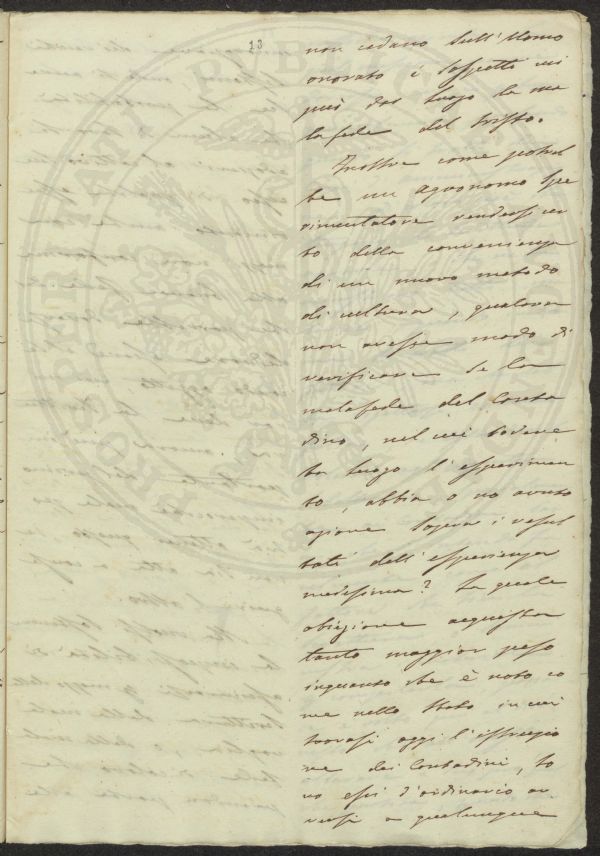 13
non cedano sull'Uomo
onorato i sospetti cui
può dar luogo la ma
lafede del tristo.
Inoltre come potreb
be un agronomo spe
rimentatore rendersi cer
to della convenienza
di un nuovo metodo
di cultura, qualora
non avesse modo di
verificare se la
malafede del Conta
dino, nel cui podere
ha luogo l'esperimen
to, abbia o no avuto
azione sopra i resul
tati dell'esperienza
medesima? La quale
obiezione acquista
tanto maggior peso
inquanto che è noto co
me nello stato in cui
trovasi oggi l'istruzio
ne dei Contadini, so
no essi d'ordinario av
versi a qualunque